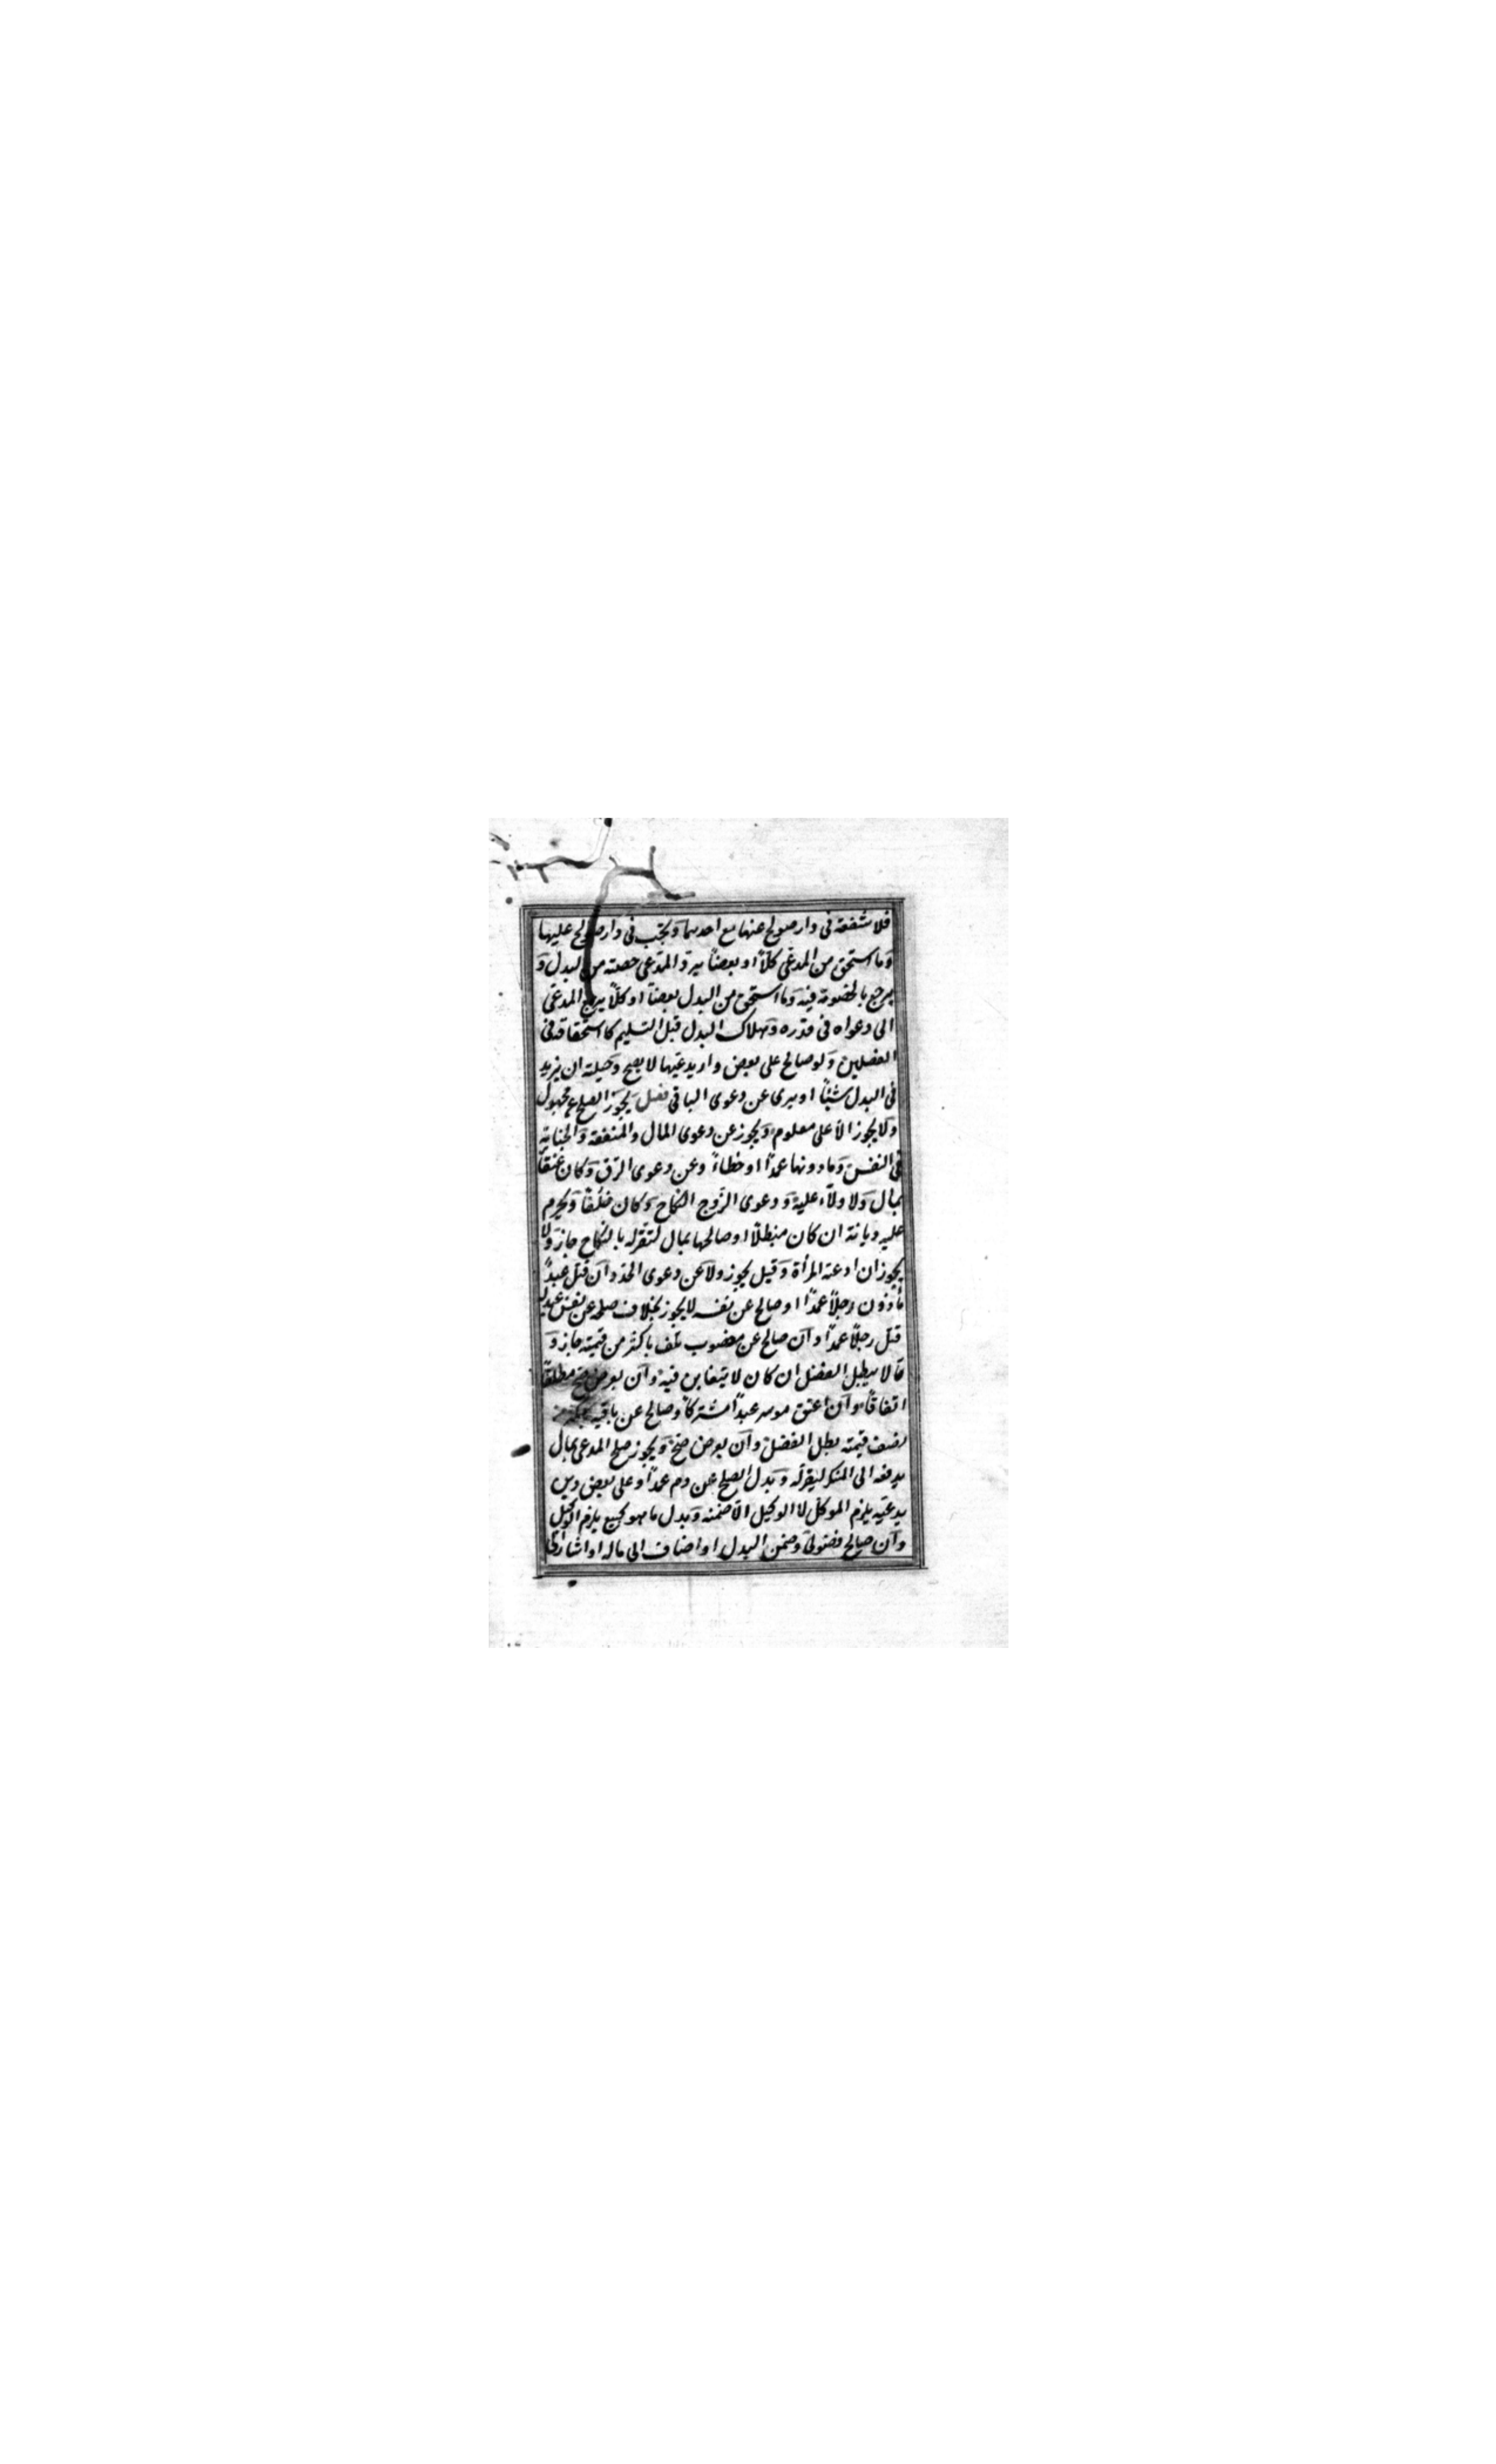 فلا شفعة فى دار صولح عنها مع احدهما وتجب فى دار صولح عليها
وما استحق من المدعى كلًا او بعضًا يرد المدعى حصته من البدل و
يرجع بالخصومة فيه وما استحق من البدل بعضًا او كلًا يرجع المدعى
الى دعواه فى قدره وهلاك البدل قبل التسليم كاستحقاقه فى
الفصلين ولو صالح على بعض دار يدعيها لا يصح وحيلته ان يزيد
فى البدل شيئًا او يبرى عن دعوى الباقى فصل يجوز الصلح عن مجهول
ولا يجوز الا على معلوم ويجوز عن دعوى المال والمنفعة والجناية
فى النفس وما دونها عمدًا او خطاءً وعن دعوى الرق وكان عتقًا
بمال ولا ولاء عليه ودعوى الزوج النكاح وكان خلعًا ويحرم
عليه ديانة ان كان مبطلًا او صالحها بمال لتقر له بالنكاح جاز ولا
يجوز ان ادعته المرأة وقيل يجوز ولا عن دعوى الحد وان قتل عبد
مأذون رجلًا عمدًا او صالح عن نفسه لا يجوز بخلاف صلحه عن نفس عبد له
قتل رجلًا عمدًا وان صالح عن مغصوب تلف باكثر من قيمته جاز و
قالا يبطل الفضل ان كان لا يتغابن فيه وان بعرض صح مطلقًا
اتفاقًا وان اعتق موسر عبدًا مشتركًا وصالح عن باقيه باكثر من
نصف قيمته بطل الفضل وان بعرض صح ويجوز صلح المدعى بمال
يدفعه الى المنكر ليقر له وبدل الصلح عن دم عمدًا وعلى بعض دين
يدعيه يلزم الموكل لا الوكيل الا ضمنه وبدل ما هو كبيع يلزم الوكيل
وان صالح فضولى وضمن البدل او اضاف الى ماله او اشار الى